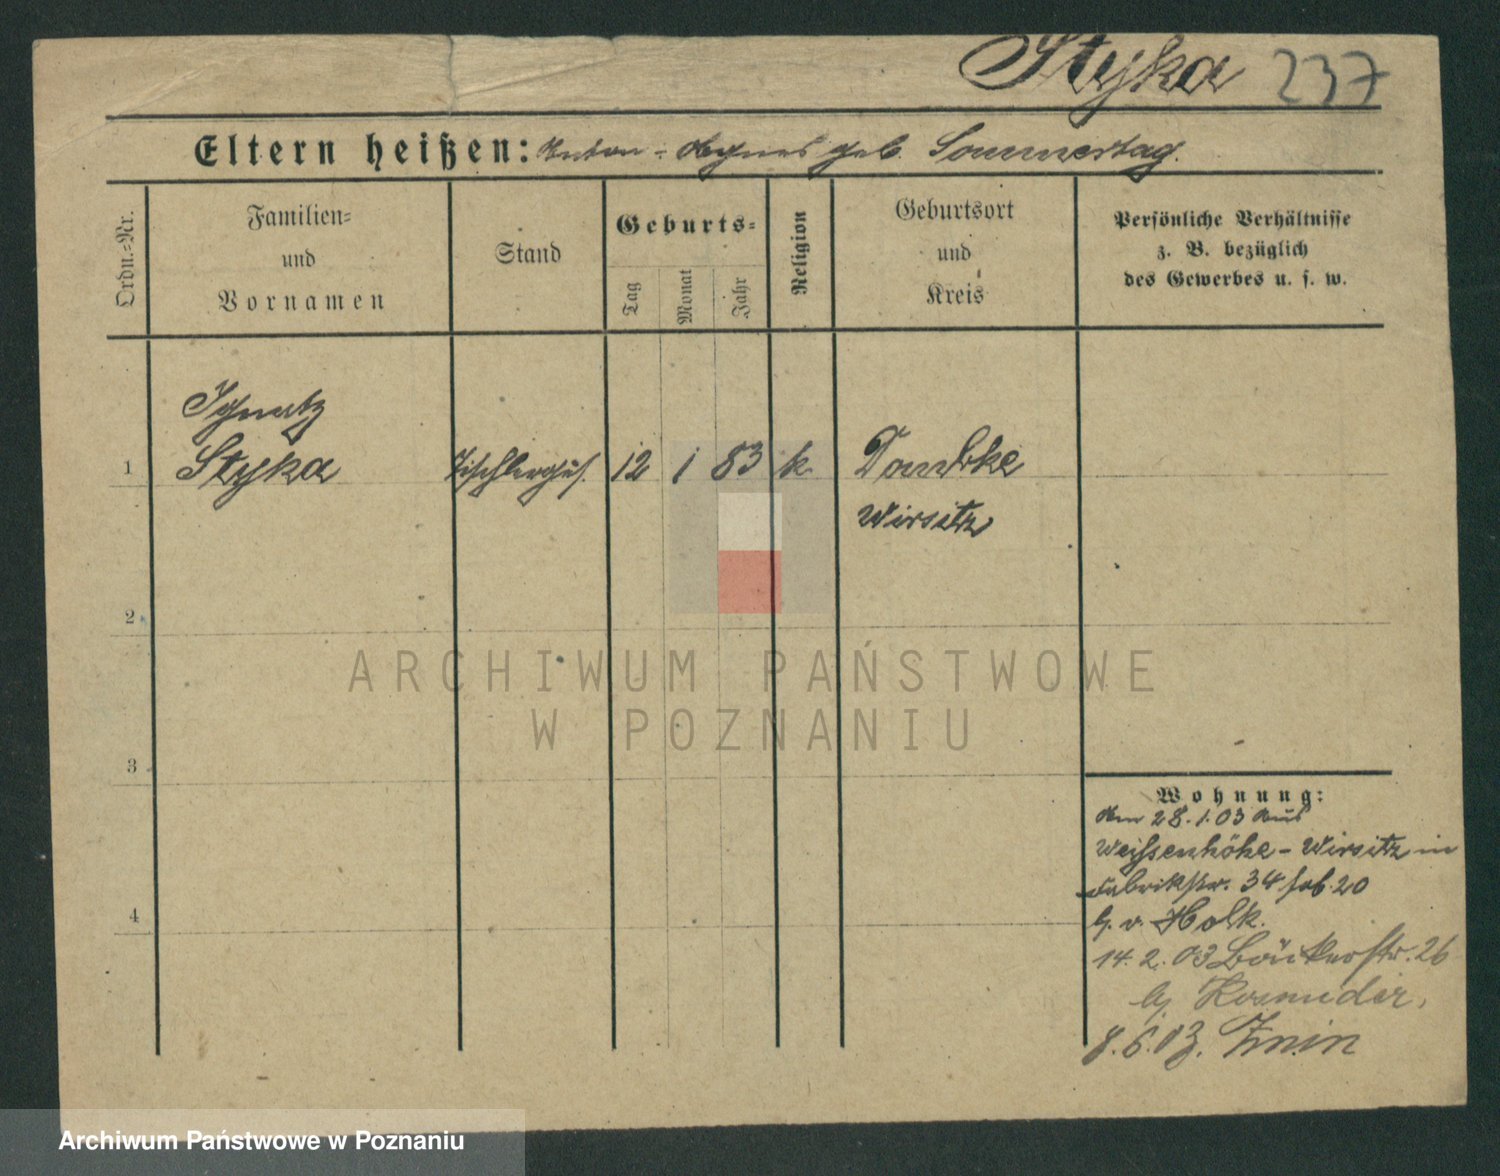 Styka 237
Eltern heißen: Anton - Agnes geb. Sommertag.
Ordn.=Nr.
Familien=
und
Vornamen
Stand
Geburts=
Tag
Monat
Jahr
Religion
Geburtsort
und
Kreis
Persönliche Verhältnisse
z. B. bezüglich
des Gewerbes u. s. w.
Ignatz
1 Styka Tischlerges. 12 1 83 k.
Wirsitz
2
3
4
Wohnung:
Am 28.1.03 aus
Weissenhöhe - Wirsitz in
Fabrikstr. 34
b. v. Holk.
14.2.03 Bäckerstr. 26
b. Kosmider,
8.6.03. Znin
ARCHIWUM PAŃSTWOWE
W POZNANIU
Archiwum Państwowe w Poznaniu